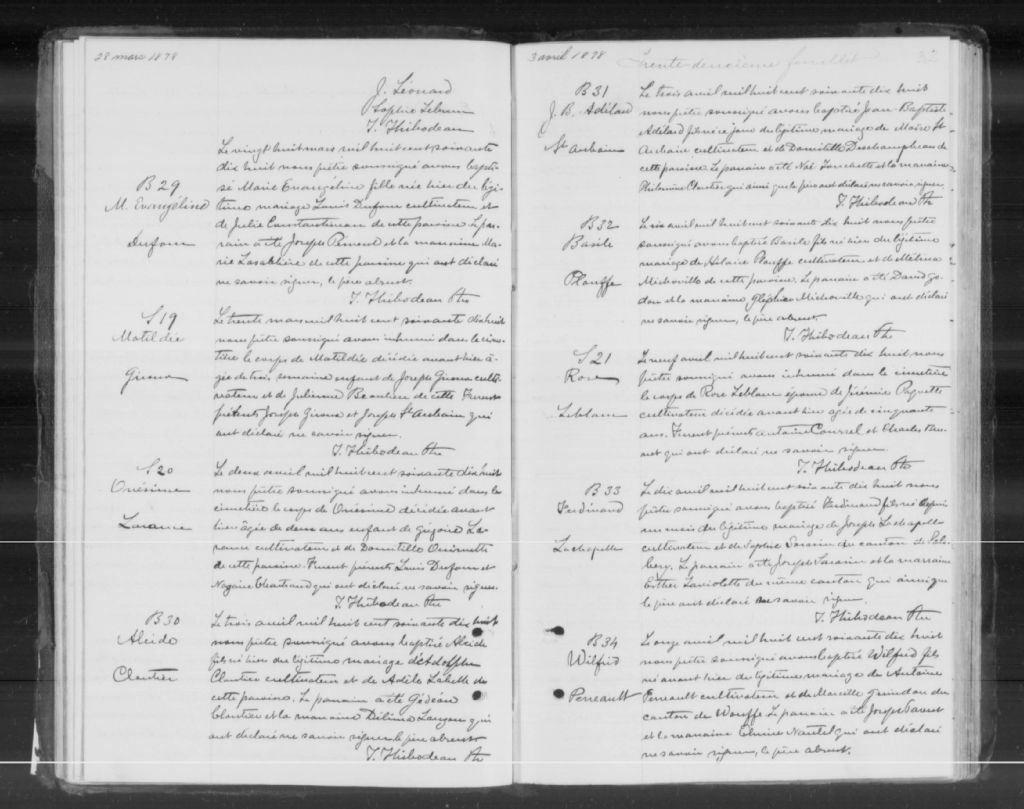 28 mars 1878
J. Léonard
Sophie Lebrun
T. Thibodeau
B 29
M. Evangéline
Dufour
Le vingt huit mars mil huit cent soixante
dix huit nous prêtre soussigné avons bapti-
sé Marie Evangéline fille née hier du légi-
time mariage Louis Dufour cultivateur et
de Julie Constantineau de cette paroisse Le par-
rain a été Joseph Piment et la marraine Ma-
rie Lasablière de cette paroisse qui ont déclaré
ne savoir signer, le père absent.
T. Thibodeau Ptre
S 19
Matildée
Giroux
Le trente mars mil huit cent soixante dix huit
nous prêtre soussigné avons inhumé dans le cime-
tière le corps de Matildée décédée avant hier â-
gée de trois semaines enfant de Joseph Giroux culti-
vateur et de Julienne Beaulieu de cette Furent
présents Joseph Giroux et Joseph St Aubain qui
ont déclaré ne savoir signer.
T. Thibodeau Ptre
S 20
Onésime
Larame
Le deux avril mil huit cent et soixante dix huit
nous prêtre soussigné avons inhumé dans le
cimetière le corps de Onésime décédée avant
hier âgée de deux ans enfant de Grégoire La-
rame cultivateur et de Domitille Ouimette
de cette paroisse. Furent présents Louis Dufour et
Nazaire Chartrand qui ont déclaré ne savoir signer.
T. Thibodeau Ptre
B 30
Alcide
Cloutier
Le trois avril mil huit cent soixante dix huit
nous prêtre soussigné avons baptisé Alcide
fils né hier du légitime mariage d'Adolphe
Cloutier cultivateur et de Adèle Labelle de
cette paroisse. Le parrain a été Gédéon
Cloutier et la marraine Délima Lauzon qui
ont déclaré ne savoir signer, le père absent
T. Thibodeau Ptre
3 avril 1878
Trente deuxième feuillet
32
B 31
J. B. Adélard
St Aubain
Le trois avril mil huit cent soixante dix huit
nous prêtre soussigné avons baptisé Jean Baptiste
Adélard fils né ce jour du légitime mariage de Moïse St
Aubain cultivateur et de Domitille Deschampbeau de
cette paroisse Le parrain a été Noé Touchette et la marraine
Philomène Cloutier qui ainsi que le père ont déclaré ne savoir signer.
T. Thibodeau Ptre
B 32
Basile
Plouffe
Le six avril mil huit cent soixante dix huit nous prêtre
soussigné avons baptisé Basile fils né hier du légitime
mariage de Hilaire Plouffe cultivateur et de Mélina
Michoville de cette paroisse. Le parrain a été David Go-
don et la marraine Glophire Michoville qui ont déclaré
ne savoir signer, le père absent.
T. Thibodeau Ptre
S 21
Rose
Leblanc
Le neuf avril mil huit cent soixante dix huit nous
prêtre soussigné avons inhumé dans le cimetière
le corps de Rose Leblanc épouse de Jérémie Paquette
cultivateur décédée avant hier âgée de cinquante
ans. Furent présents Antoine Courcel et Charles
qui ont déclaré ne savoir signer.
T. Thibodeau Ptre
B 33
Ferdinand
Lachapelle
Le dix avril mil huit cent soixante dix huit nous
prêtre soussigné avons baptisé Ferdinand fils né depuis
un mois du légitime mariage de Joseph Lachapelle
cultivateur et de Sophie Sarasin du canton de Sals-
bery. Le parrain a été Joseph Sarasin et la marraine
Esther Laviolette du même canton qui ainsi que
le père ont déclaré ne savoir signer
T. Thibodeau Ptre
B 34
Wilfrid
Perreault
Le onze avril mil huit cent soixante dix huit
nous prêtre soussigné avons baptisé Wilfrid fils
né avant hier du légitime mariage de Antoine
Perreault cultivateur et de Marcille Grindon du
canton de Woulfe Le parrain a été Joseph
et la marraine Elmire Nantel qui ont déclaré
ne savoir signer, le père absent.